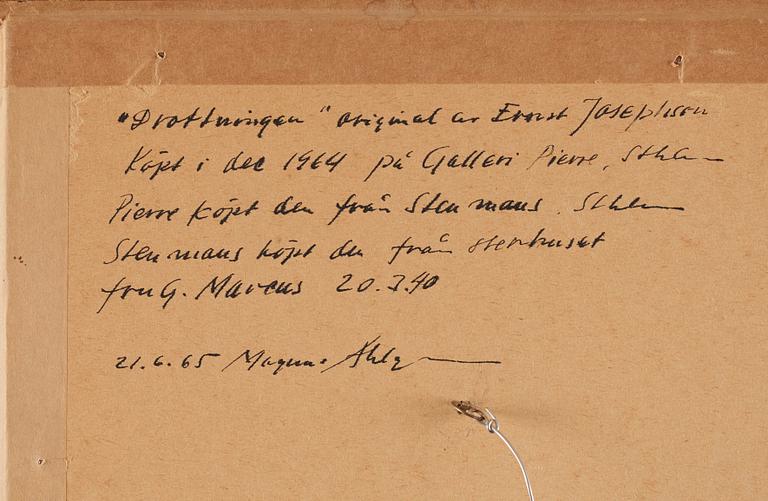 "Drottningen" original av Ernst Josephson
Köpt i dec 1964 på Galleri Pierre, Sthlm
Pierre köpt den från Stenmans, Sthlm
Stenmans köpt den från sterbhuset
fru G. Marcus 20.3.40
21.6.65 Magnus